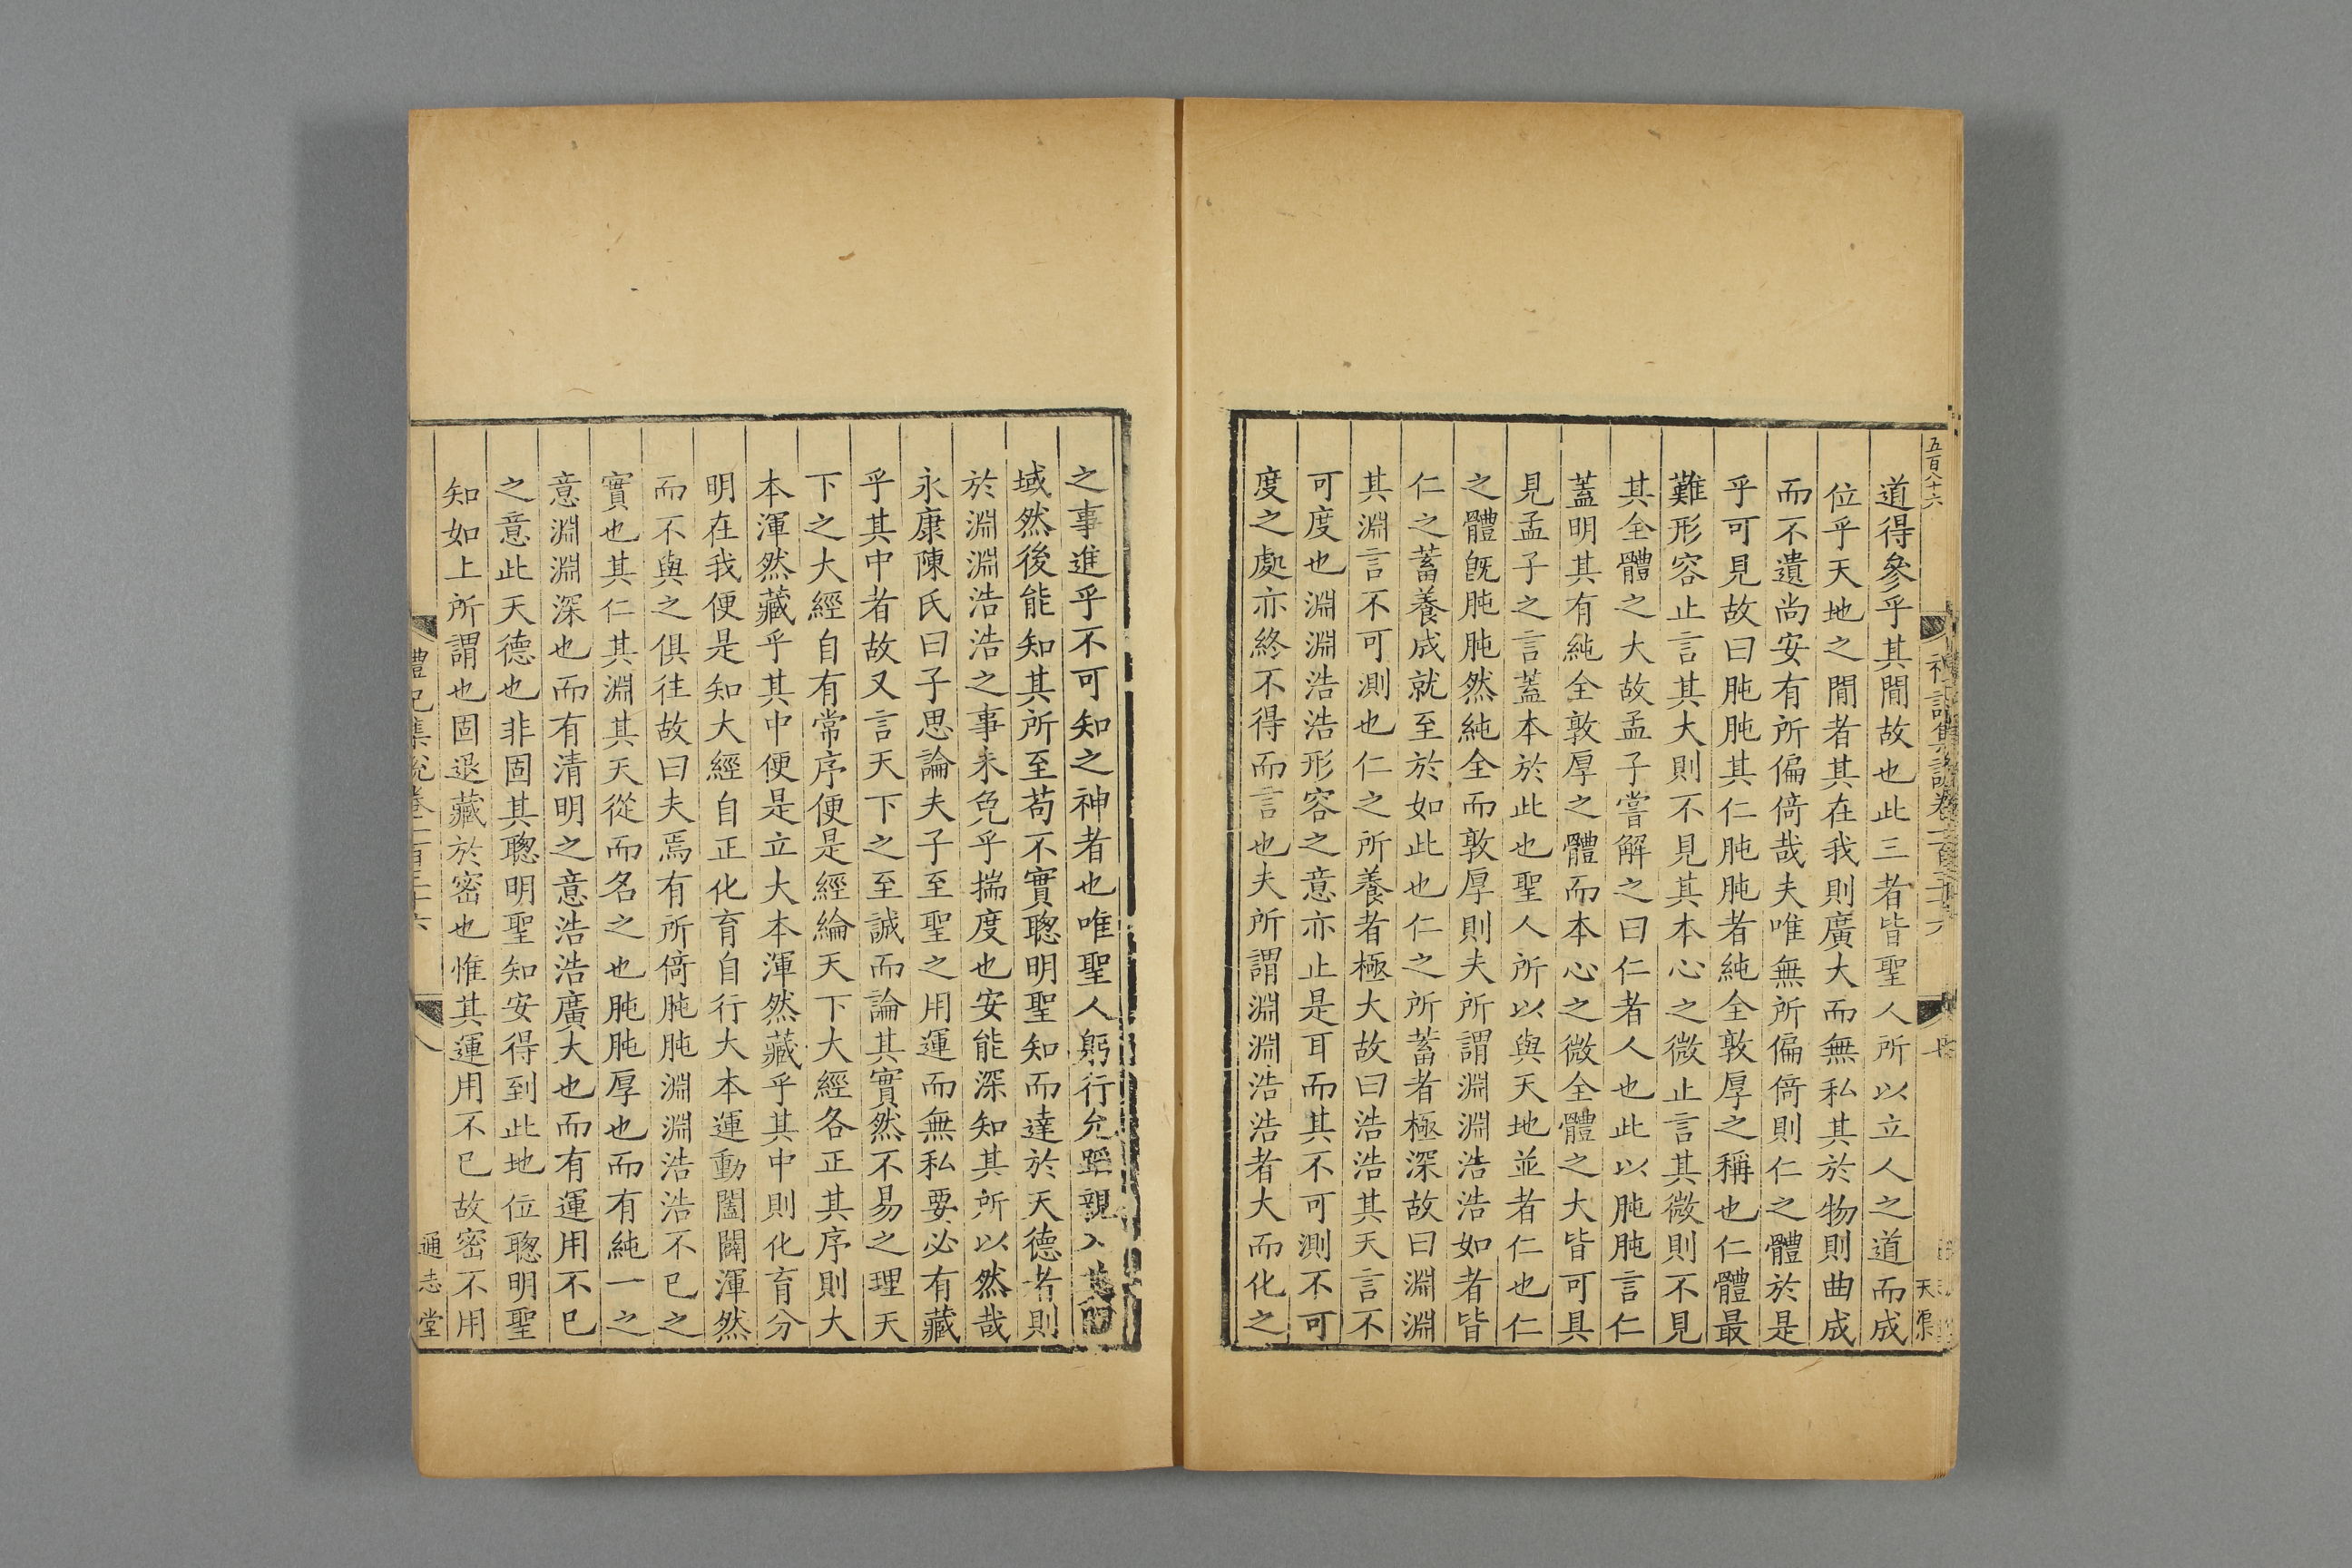 五百八十六
道得參乎其間故也此三者皆聖人所以立人之道而成
位乎天地之間者其在我則廣大而無私其於物則曲成
而不遺尚安有所偏倚哉夫唯無所偏倚則仁之體於是
乎可見故曰肫肫其仁肫肫者純全敦厚之稱也仁體最
難形容止言其大則不見其本心之微止言其微則不見
其全體之大故孟子嘗解之曰仁者人也此以肫肫言仁
蓋明其有純全敦厚之體而本心之微全體之大皆可具
見孟子之言蓋本於此也聖人所以與天地並者仁也仁
之體旣肫肫然純全而敦厚則夫所謂淵淵浩浩如者皆
仁之蓄養成就至於如此也仁之所蓄者極深故曰淵淵
其淵言不可測也仁之所養者極大故曰浩浩其天言不
可度也淵淵浩浩形容之意亦止是耳而其不可測不可
度之處亦終不得而言也夫所謂淵淵浩浩者大而化之
之事進乎不可知之神者也唯聖人躬行允蹈親入其
域然後能知其所至苟不實聰明聖知而達於天德者則
於淵淵浩浩之事未免乎揣度也安能深知其所以然哉
永康陳氏曰子思論夫子至聖之用運而無私要必有藏
乎其中者故又言天下之至誠而論其實然不易之理天
下之大經自有常序便是經綸天下大經各正其序則大
本渾然藏乎其中便是立大本渾然藏乎其中則化育分
明在我便是知大經自正化育自行大本運動闔闢渾然
而不與之俱往故曰夫焉有所倚肫肫淵淵浩浩不已之
實也其仁其淵其天從而名之也肫肫厚也而有純一之
意淵淵深也而有清明之意浩浩廣大也而有運用不已
之意此天德也非固其聰明聖知安得到此地位聰明聖
知如上所謂也固退藏於密也惟其運用不已故密不用
禮記集說卷一百三十六
八
通志堂